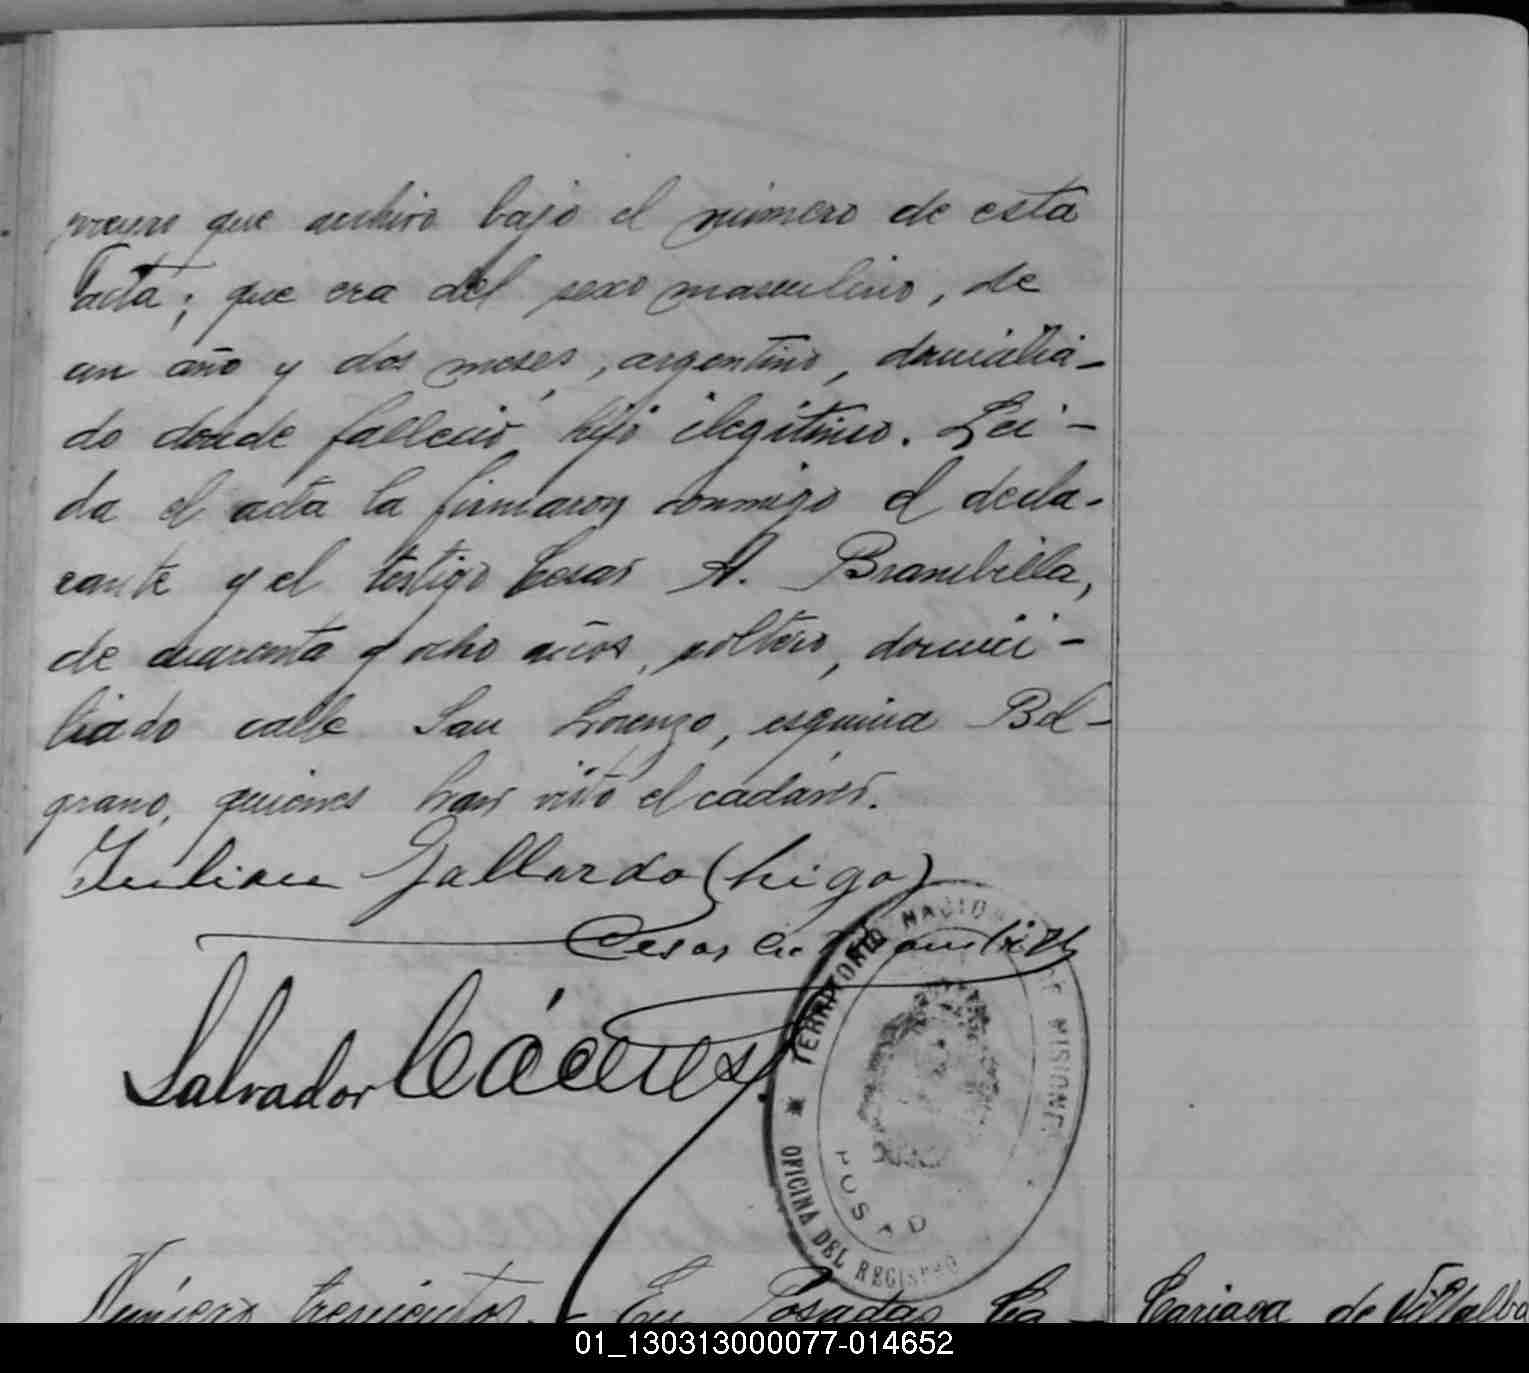 que archivo bajo el número de esta
acta; que era del sexo masculino, de
un año y dos meses, argentino, domicilia-
do donde falleció, hijo ilegítimo. Lei-
da el acta la firmaron conmigo el decla-
rante y el testigo Cesar A. Brambilla,
de cuarenta y ocho años, soltero, domici-
liado calle San Lorenzo, esquina Bel-
grano, quienes han visto el cadáver.
Julian Gallardo (higo)
Cesar A. Brambilla
Salvador Cáceres
TERRITORIO NACIONAL DE MISIONES
POSADAS
OFICINA DEL REGISTRO
Número trescientos. - En Posadas Ca-
de Villalba
01_130313000077-014652